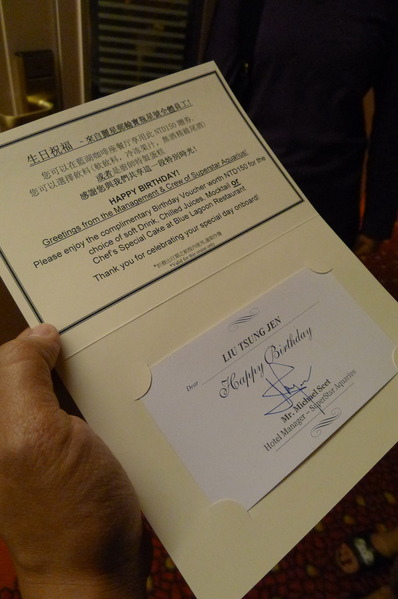 生日祝福 - 來自麗星郵輪寶瓶星號全體員工!
您可以在藍湖咖啡座餐廳享用此NTD150 贈券,
您可以選擇飲料(軟飲料, 冷凍果汁, 無酒精雞尾酒)
或者是廚師特製蛋糕
感謝您與我們共享這一段特別時光!
HAPPY BIRTHDAY!
Greetings from the Management & Crew of Superstar Aquarius!
Please enjoy the complimentary Birthday Voucher worth NTD150 for the
choice of soft Drink, Chilled Juices, Mocktail or
Chef's Special Cake at Blue Lagoon Restaurant
Thank you for celebrating your special day onboard!
*Valid for this cruise only
LIU TSUNG JEN
Dear
Happy Birthday
Mr. Michael Seet
Hotel Manager – SuperStar Aquarius